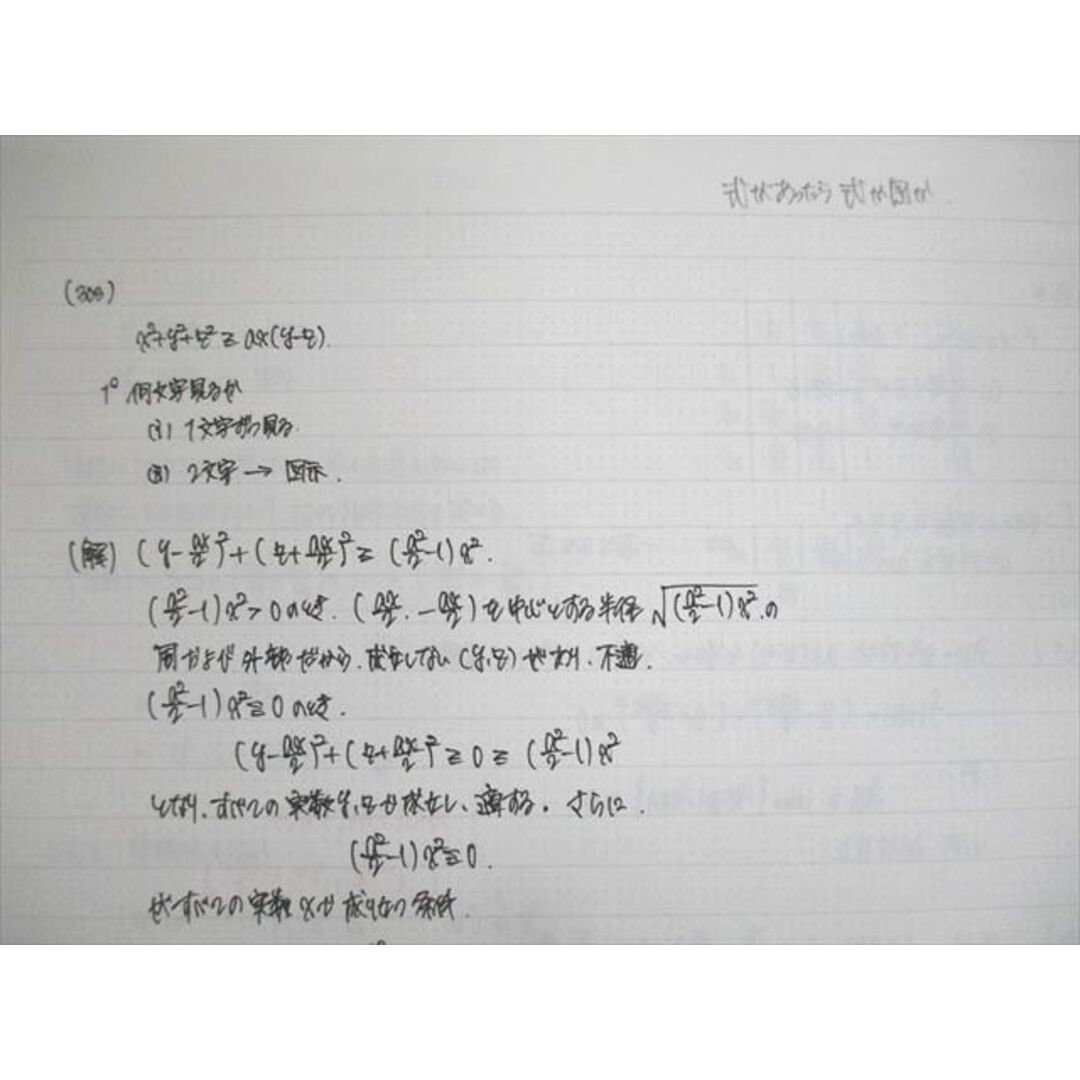 式があったら 式か図か
x²+y²+z² ≧ ax(y-z).
1° 何文字見るか
(i) 1文字ずつ見る.
(ii) 2文字 → 図示.
(解) (y-ax/2)²+(z+ax/2)² ≧ (a²/2-1)x².
(a²/2-1)x²>0のとき. (ax/2, -ax/2)を中心とする半径√(a²/2-1)x²の
周および外部だから、成立しない(y,z)があり、不適.
(a²/2-1)x²≦0のとき.
(y-ax/2)²+(z+ax/2)² ≧ 0 ≧ (a²/2-1)x²
となり、すべての実数y,zで成立し、適する. さらに.
(a²/2-1)x²≦0.
がすべての実数xで成り立つ条件.